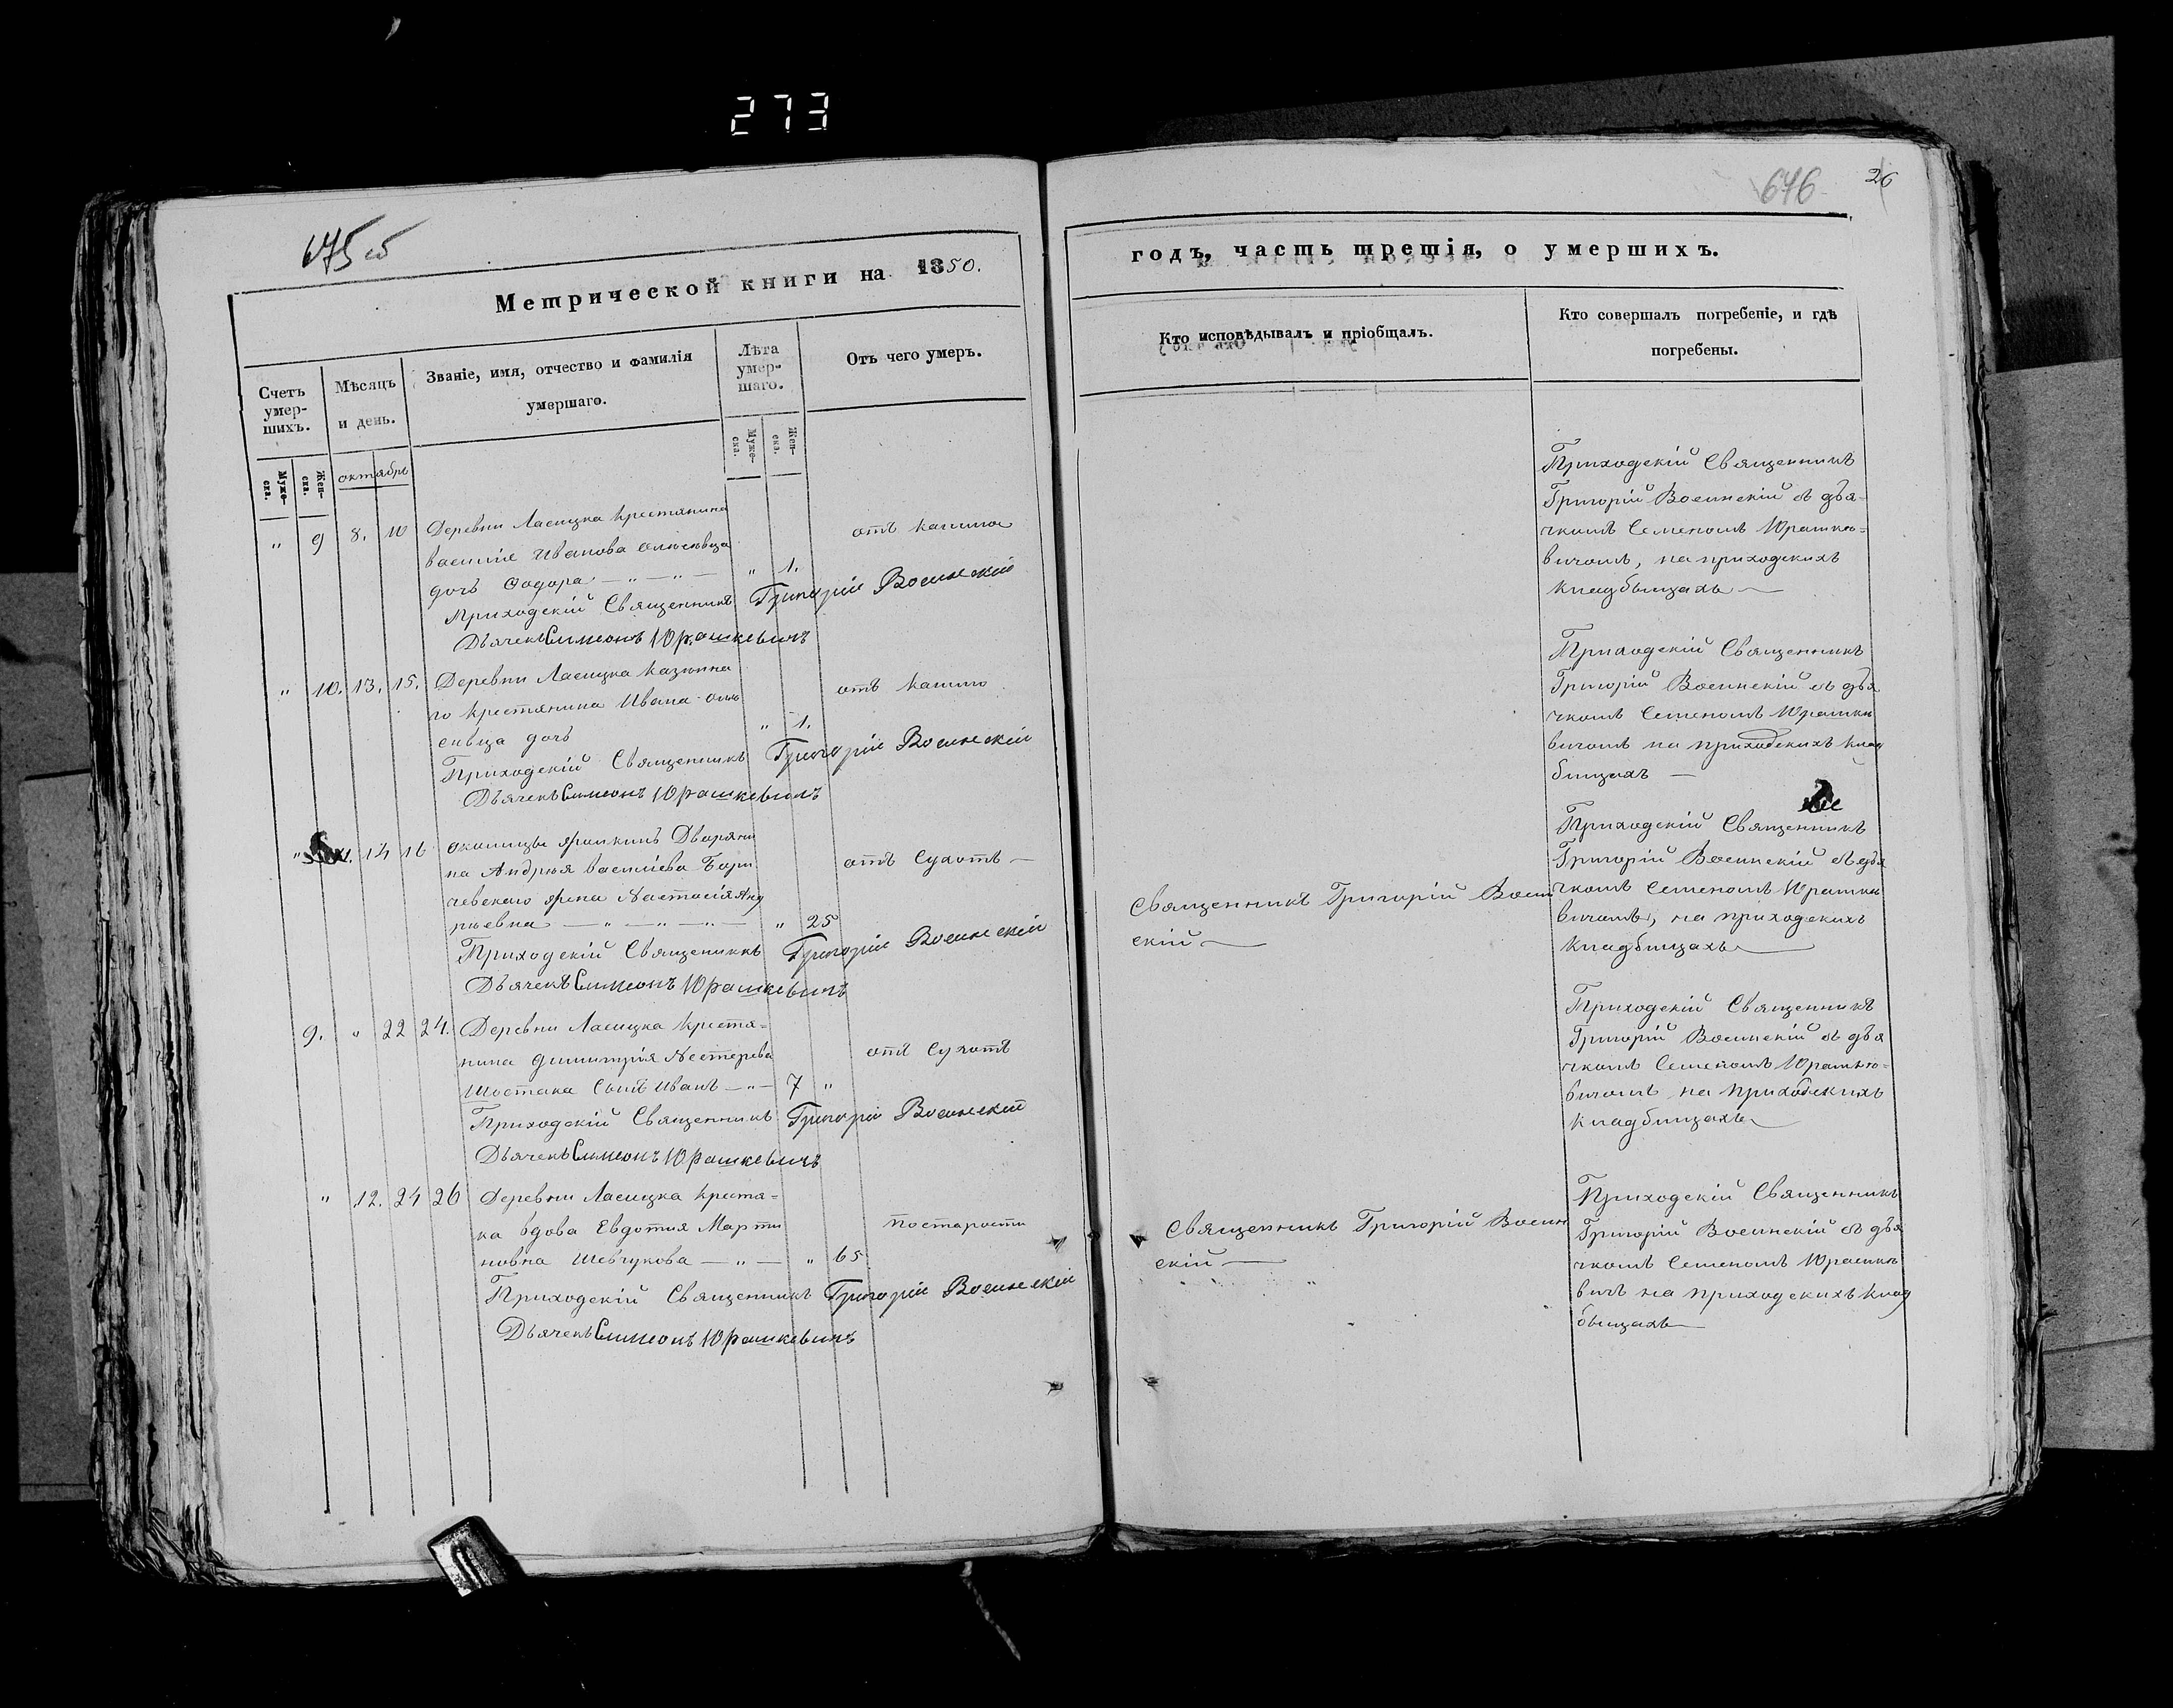 273
675 об
Метрической книги на 1850.
Счетъ умер-шихъ.
Мѣсяцъ и день.
Званіе, имя, отчество и фамилія умершаго.
Лѣта умер-шаго.
Отъ чего умеръ.
Муже-ска.
Жен-ска.
октябрь
Муже-ска.
Жен-ска.
" 9 8. 10 Деревни Ласицка крестянина
василія Иванова
дочь Федора — " — " — " 1. отъ кашлю
Приходскій Священникъ Григорій Воснскій
Дьячекъ Симеонъ Юрашкевичъ
" 10. 13. 15. Деревни Ласицка казюнна
го крестянина Ивана
дочь " 1. отъ кашлю
Приходскій Священникъ Григорій Воснскій
Дьячекъ Симеонъ Юрашкевичъ
" 14 16 околицы Дворяни
на Андрея василіева Бори
чевскаго жена Настасія Анд
рьевна — " — " — " — " 25 отъ Сухотъ —
Приходскій Священникъ Григорій Воснскій
Дьячекъ Симеонъ Юрашкевичъ
9. " 22 24. Деревни Ласицка крестя=
нина Димитрія Нестерева
Шостака Сынъ Иванъ — " — 7 " отъ Сухотъ
Приходскій Священникъ Григорій Воснскій
Дьячекъ Симеонъ Юрашкевичъ
" 12. 24 26 Деревни Ласицка креста=
ка вдова Евдотия Марти
новна Шевчукова — " — " 65 постарости
Приходскій Священникъ Григорій Воснскій
Дьячекъ Симеонъ Юрашкевичъ
676
26
годъ, часть третія, о умершихъ.
Кто исповѣдывалъ и пріобщалъ.
Кто совершалъ погребеніе, и гдѣ погребены.
Приходскій Священникъ
Григорій Воснскій съ дья-
чкомъ Семеномъ Юрашке=
вичомъ, на приходскихъ
кладбыщахъ —
Приходскій Священникъ
Григорій Воснскій съ дья
чкомъ Семеномъ Юрашке
вичомъ на приходскихъ клад
бищахъ —
Священникъ Григорій Восн
скій —
Приходскій Священникъ
Григорій Воснскій съ дья
чкомъ Семеномъ Юрашке
вичомъ, на приходскихъ
кладбищахъ —
Приходскій Священникъ
Григорій Воснскій съ дья
чкомъ Семеномъ Юрашке=
вичомъ на приходскихъ
кладбищахъ
Священникъ Григорій Восн
скій —
Приходскій Священникъ
Григорій Воснскій съ дья
чкомъ Семеномъ Юрашке
вичъ на приходскихъ клад
быщахъ —